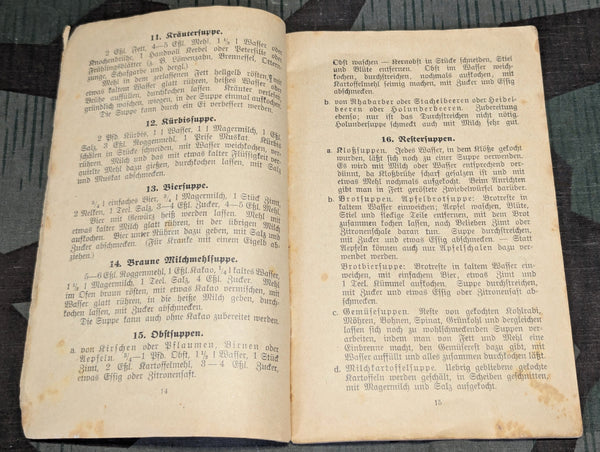 11. Kräutersuppe.
2 Eßl. Fett, 4—5 Eßl. Mehl, 1 1/2 l Wasser oder
Knochenbrühe, 1 Handvoll Kerbel oder Petersilie oder
Frühlingsblätter (z. B. Löwenzahn, Brennessel, Sternmiere,
junge, Schafgarbe und dergl.)
Mehl in dem zerlassenen Fett hellgelb rösten, mit
etwas kaltem Wasser glatt rühren, heißes Wasser oder
Brühe auffüllen, durchkochen lassen. Kräuter verlesen,
gründlich waschen, wiegen, in der Suppe einmal aufkochen.
Die Suppe kann durch ein Ei verbessert werden.
12. Kürbissuppe.
2 Pfd. Kürbis, 1 l Wasser, 1 l Magermilch, 1 Teel.
Salz, 3 Eßl. Mehl, 1 Prise Muskat. Kürbis
schälen in Stücke schneiden, mit Wasser weichkochen, ver-
rühren, Milch und das mit etwas kalter Flüssigkeit ver-
quirlte Mehl dazugeben, durchkochen lassen, mit Salz
und Muskat abschmecken.
13. Biersuppe.
3/4 l einfaches Bier, 3/4 l Magermilch, 1 Stück Zimt,
2 Nelken, 1 Teel. Salz, 3—4 Eßl. Mehl, 3—4 Eßl. Zucker.
Bier mit Gewürz heiß werden lassen. Mehl mit
etwas kalter Milch glatt rühren, in der übrigen Milch
aufkochen. Bier unter Rühren dazu geben, mit Salz
und Zucker abschmecken. (Für Kranke mit einem Eigelb ab-
ziehen.)
14. Braune Milchmehlsuppe.
5—6 Eßl. Roggenmehl, 1 Eßl. Kakao, 1/4 l kaltes Wasser,
1 1/2 l Magermilch, 1 Teel. Salz, 4 Eßl. Zucker. Mehl
im Ofen braun rösten, mit etwas Kakao vermischen, mit
Wasser glatt rühren, in die heiße Milch geben, durch-
kochen lassen, mit Zucker abschmecken.
Die Suppe kann auch ohne Kakao zubereitet werden.
15. Obstsuppen.
a. von Kirschen oder Pflaumen, Birnen oder
Aepfeln. 3/4—1 Pfd. Obst, 1 1/2 l Wasser, 1 Stück
Zimt, 2 Eßl. Kartoffelmehl, 3—4 Eßl. Zucker,
etwas Essig oder Zitronensaft.
14
Obst waschen — Kernobst in Stücke schneiden, Stiel
und Blüte entfernen. Obst im Wasser weich-
kochen, durchstreichen, nochmals aufkochen, mit
Kartoffelmehl seimig machen, mit Zucker und Essig
abschmecken.
b. von Rhabarber oder Stachelbeeren oder Heidel-
beeren oder Holunderbeeren. Zubereitung
ebenso; nur ist das Durchstreichen nicht nötig.
Holundersuppe schmeckt auch mit Milch sehr gut.
16. Restersuppen.
a. Kloßsuppen. Jedes Wasser, in dem Klöße gekocht
wurden, läßt sich noch zu einer Suppe verwenden.
Es wird mit Milch oder Wasser entsprechend ver-
dünnt, da Kloßbrühe scharf gesalzen ist und mit
etwas Mehl nochmals aufgekocht. Beim Anrichten
gibt man in Fett geröstete Zwiebelwürfel darüber.
b. Brotsuppen. Apfelbrotsuppe: Brotreste in
kaltem Wasser einweichen; Aepfel waschen, Blüte,
Stiel und fleckige Teile entfernen, mit dem Brot
zusammen kochen lassen, nach Belieben Zimt oder
Zitronenschale daran tun. Suppe durchstreichen,
mit Zucker und etwas Essig abschmecken. — Statt
Aepfeln können auch nur Apfelschalen dazu ver-
wendet werden.
Brotbiersuppe: Brotreste in kaltem Wasser ein-
weichen, mit einfachem Bier, etwas Zimt und
1 Teel. Kümmel aufkochen. Suppe durchstreichen,
mit Zucker und etwas Essig oder Zitronensaft ab-
schmecken.
c. Gemüsesuppen. Reste von gekochten Kohlrabi,
Möhren, Bohnen, Spinat, Grünkohl und dergleichen
lassen sich noch zu wohlschmeckenden Suppen verar-
beiten, indem man von Fett und Mehl eine
Einbrenne macht, den Gemüserest dazu gibt, mit
Wasser auffüllt und alles zusammen durchkochen läßt.
d. Milchkartoffelsuppe. Uebrig gebliebene gekochte
Kartoffeln werden geschält, in Scheiben geschnitten,
mit Magermilch und Salz aufgekocht.
15